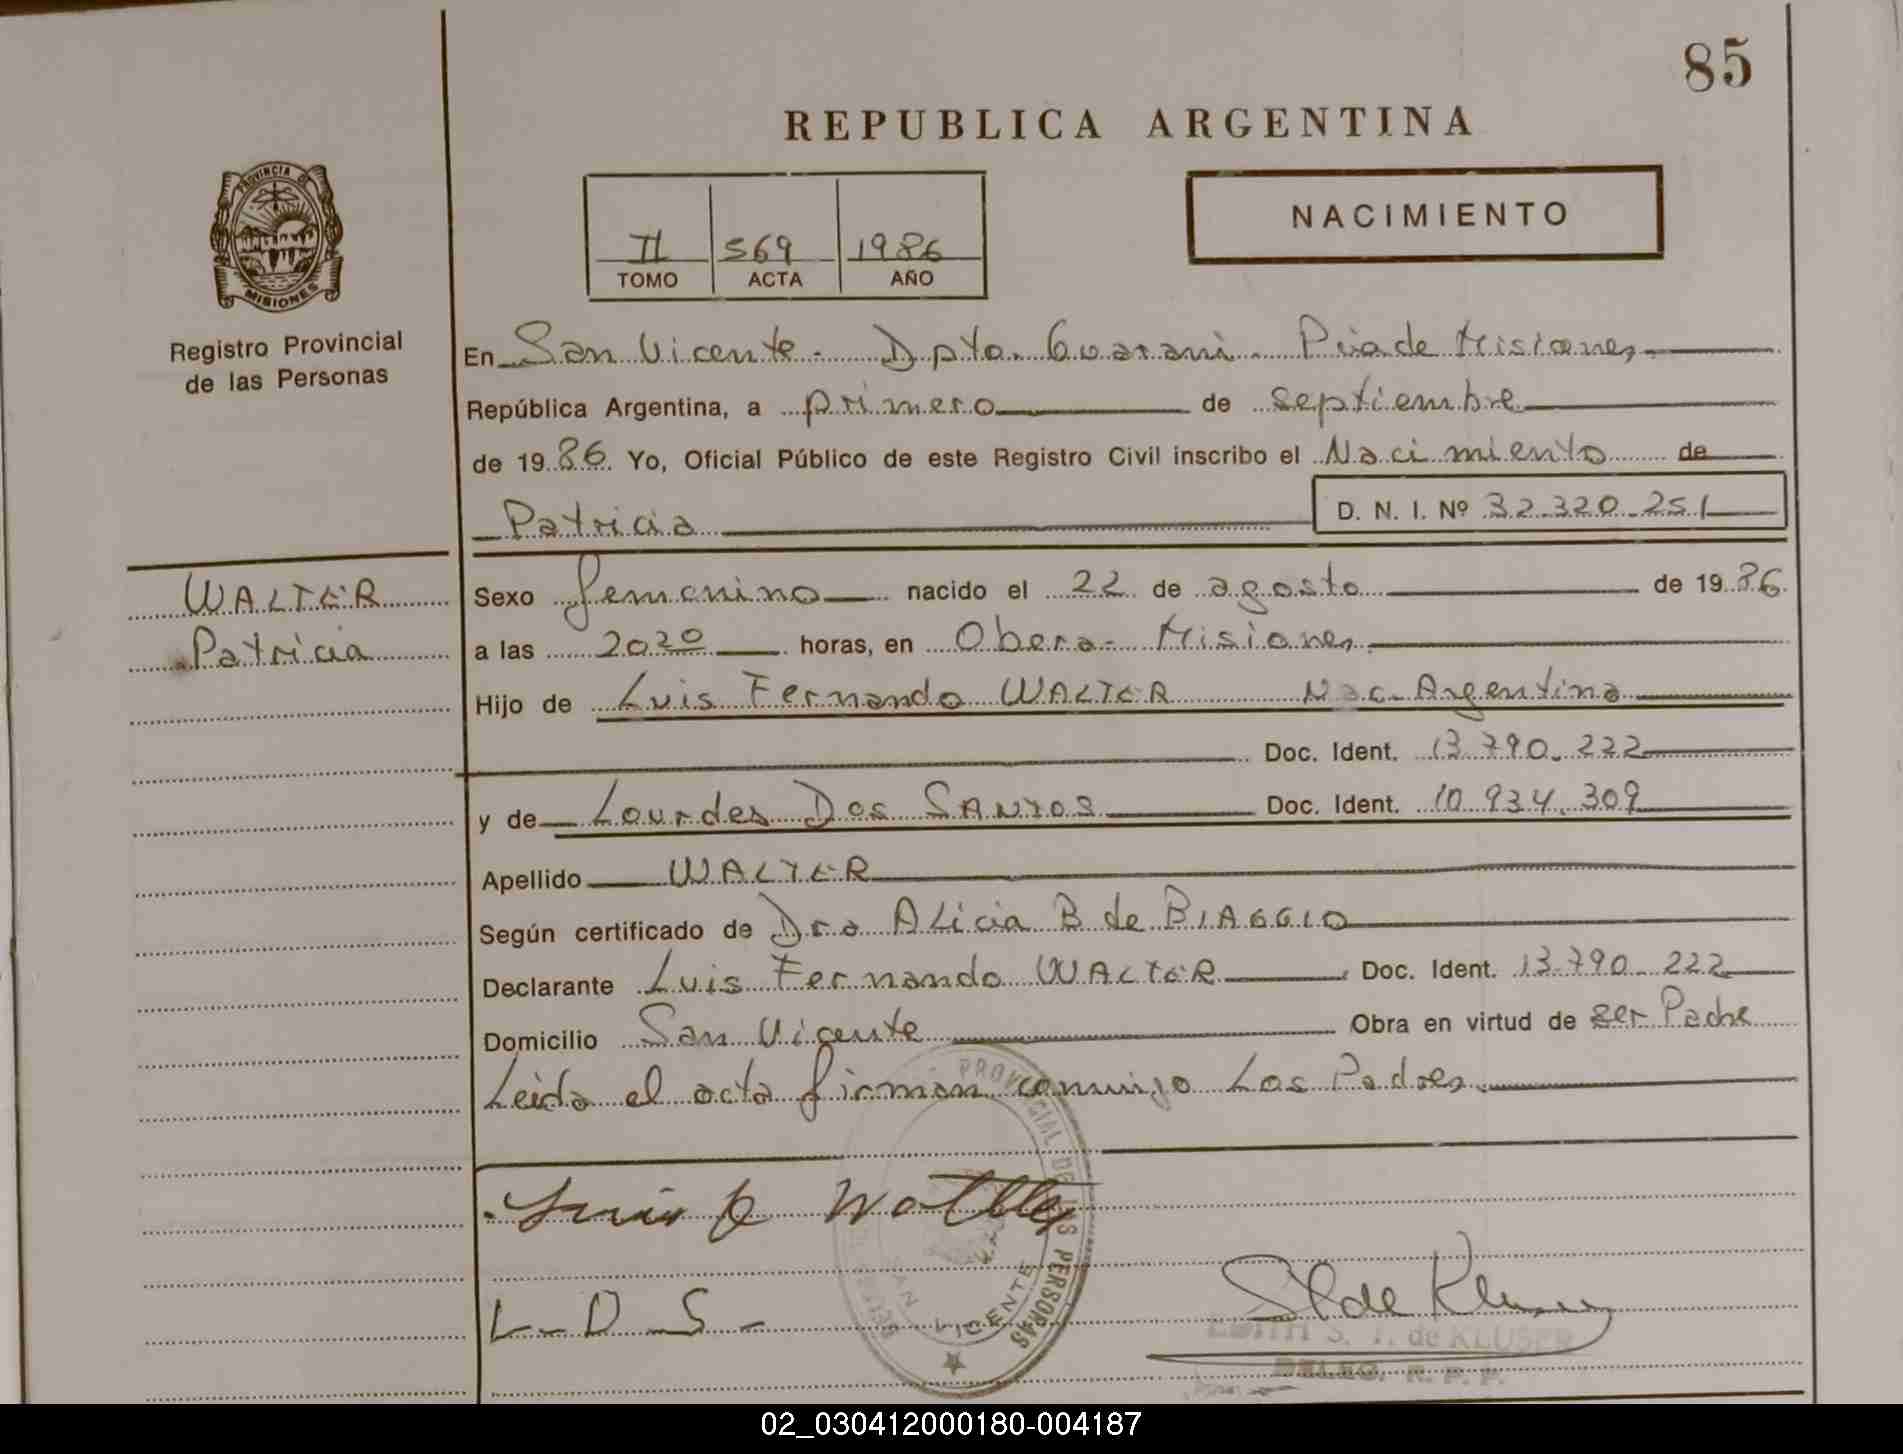 85
REPUBLICA ARGENTINA
PROVINCIA DE
MISIONES
Registro Provincial
de las Personas
II 569 1986
TOMO ACTA AÑO
NACIMIENTO
En San Vicente - Dpto. Guarani - Pcia de Misiones
República Argentina, a primero de septiembre
de 1986. Yo, Oficial Público de este Registro Civil inscribo el Nacimiento de
Patricia D. N. I. Nº 32.320.251
WALTER
Patricia
Sexo femenino nacido el 22 de agosto de 1986
a las 2020 horas, en Obera - Misiones
Hijo de Luis Fernando WALTER Nac. Argentina
Doc. Ident. 13.790.222
y de Lourdes Dos SANTOS Doc. Ident. 10.934.309
Apellido WALTER
Según certificado de Dra ALicia B de BIAGGIO
Declarante Luis Fernando WALTER Doc. Ident. 13.790.222
Domicilio San Vicente Obra en virtud de ser Padre
Leida el acta firman conmigo Los Padres
PROVINCIAL DE LAS PERSONAS
SAN VICENTE
L-D S-
EDITH S. T. de KLUSER
DELEG. R. P. P.
02_030412000180-004187